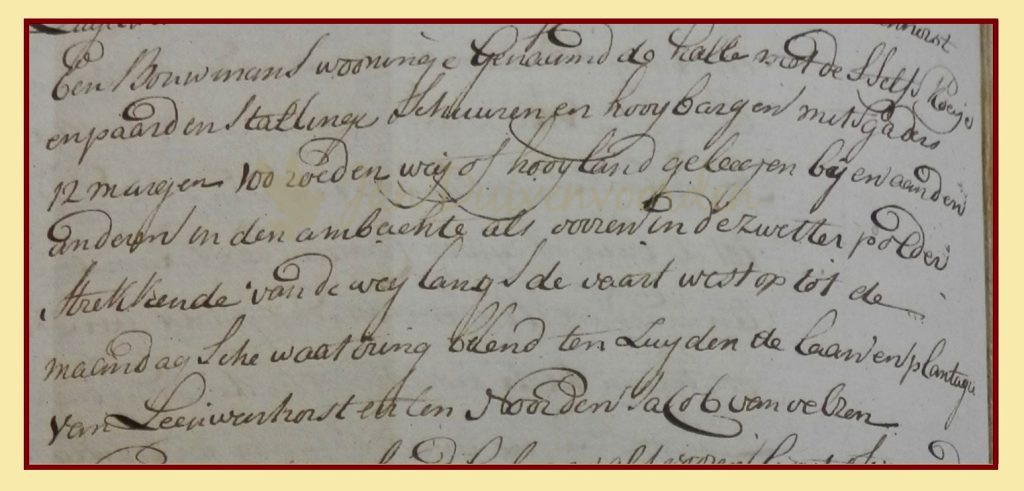 Een Bouwmans wooninge Genaamd de halle met de Selfs Koeije
en paarden Stallinge Schuuren en hooybargen mitsgaders
12 margen 100 roeden weij of hooyland geleegen bij en aan den
anderen in den ambachte als vooren in de zwetter polder
strekkende van de weg langs de vaart west op tot de
maandagsche waatering belend ten Zuyden de laan en plantagie
van Leeuwenhorst en ten Noorden Jacob van velzen